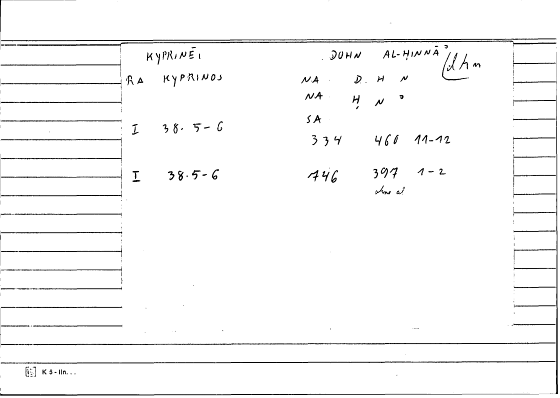 KYPRINĒI DUHN AL-ḤINNĀʾ dhn
RA KYPRINOS NA D H N
NA Ḥ N ʾ
SA
I 38.5-6
334 460 11-12
I 38.5-6 746 397 1-2
K 5 - IIn. . .